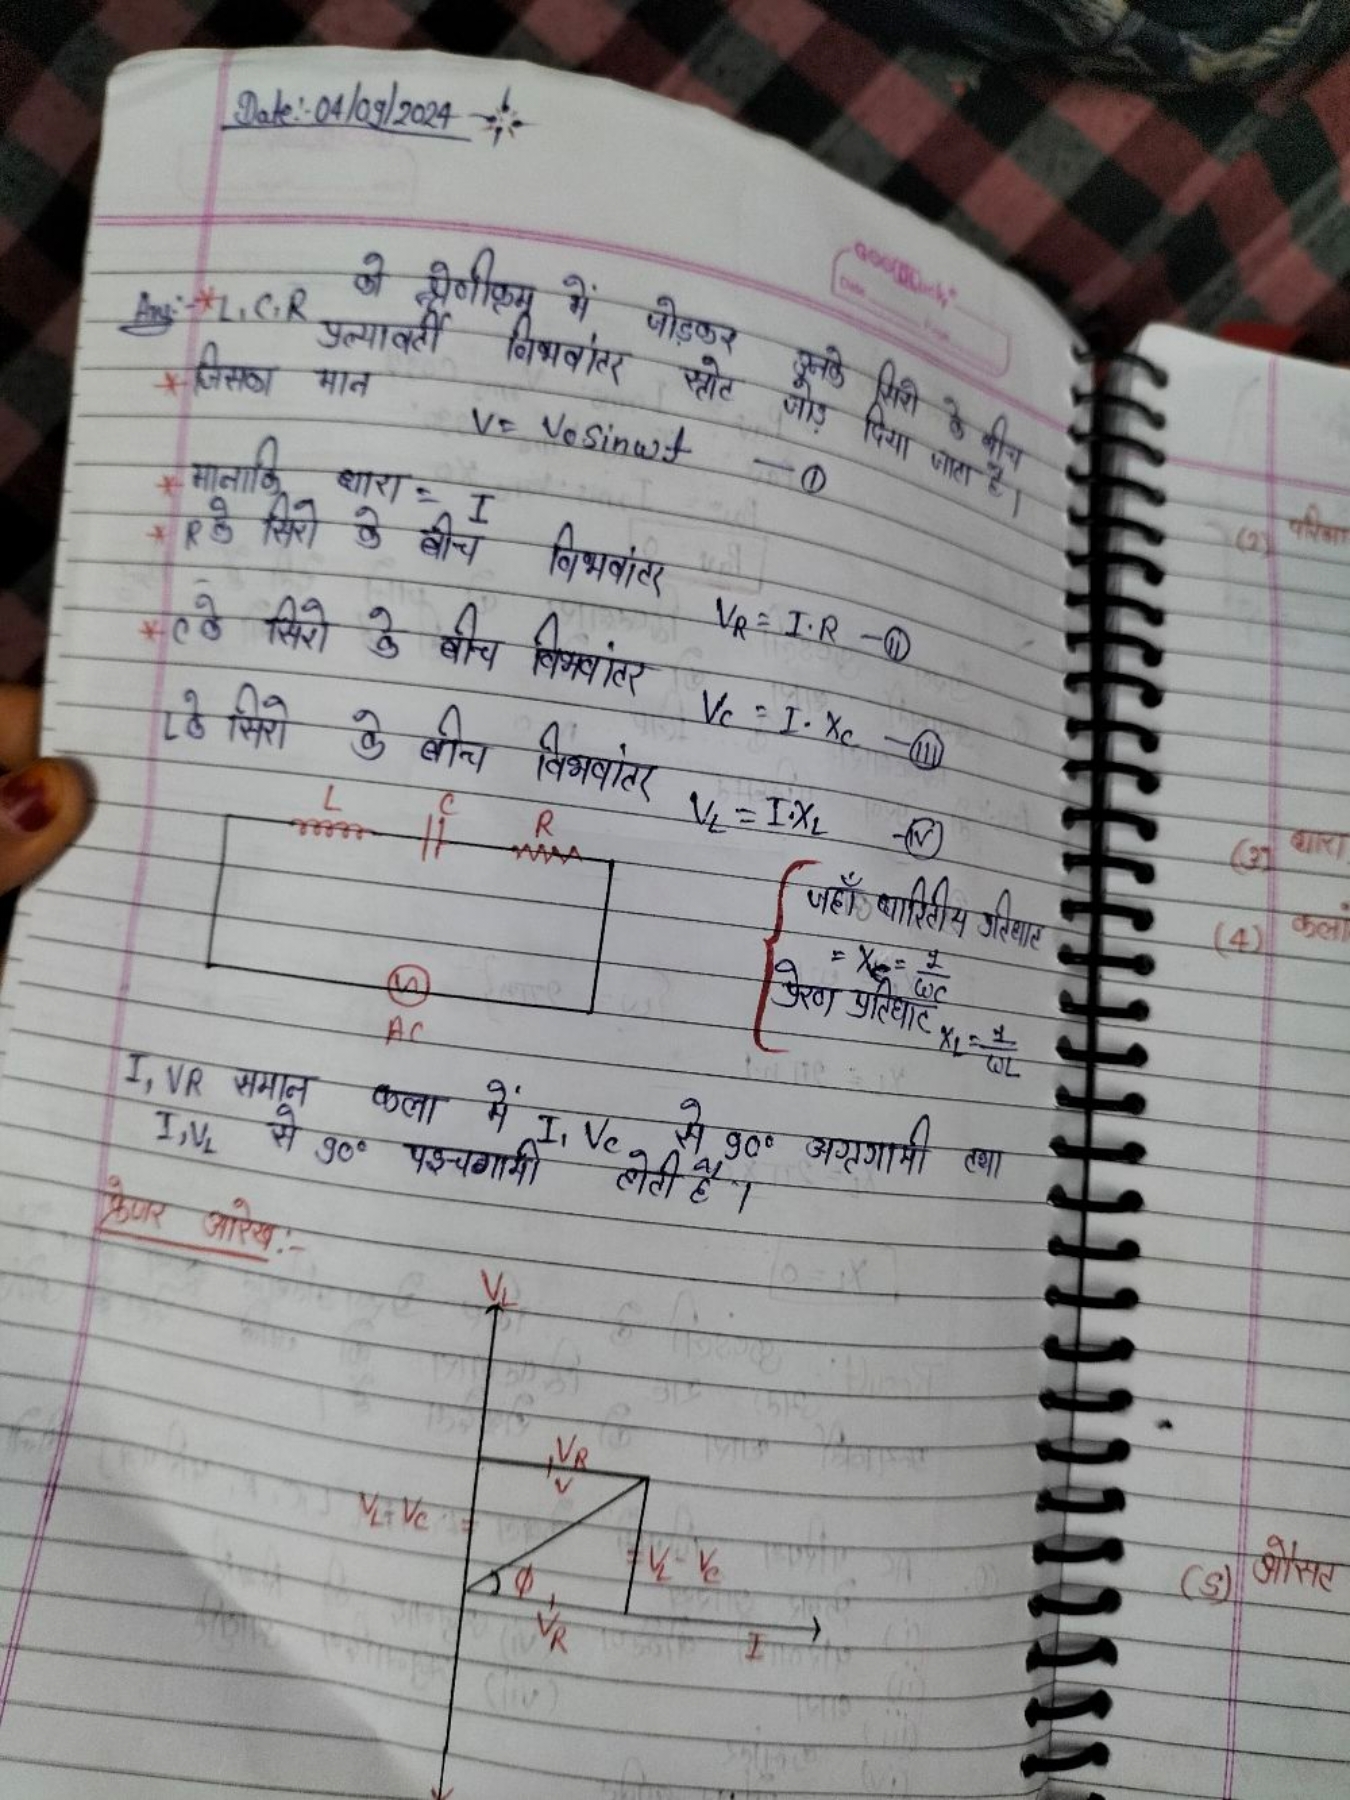 Date:-04/09/2024
Ans:- * L, C, R को श्रेणीक्रम में जोड़कर इनके सिरो के बीच
प्रत्यावर्ती विभवांतर स्त्रोट जोड़ दिया जाता है।
* जिसका मान
V = V₀ sinωt — (I)
* मानाकि धारा = I
* R के सिरो के बीच विभवांतर
VR = I·R — (II)
* C के सिरो के बीच विभवांतर
VC = I·XC — (III)
L के सिरो के बीच विभवांतर
VL = I·XL — (IV)
L
C
R
AC
जहाँ धारितीय प्रतिघाट
= XC = 1/ωC
प्रेरण प्रतिघाट XL = 1/ωL
I, VR समान कला में I, VC से 90° अग्रगामी तथा
I, VL से 90° पश्चगामी होती है।
फ्रेजर आरेख:-
VL
VR
V
VL-VC =
= VL - VC
ϕ
VR
I
(2)
(3) धारा
(4) कलां
(5) औसट